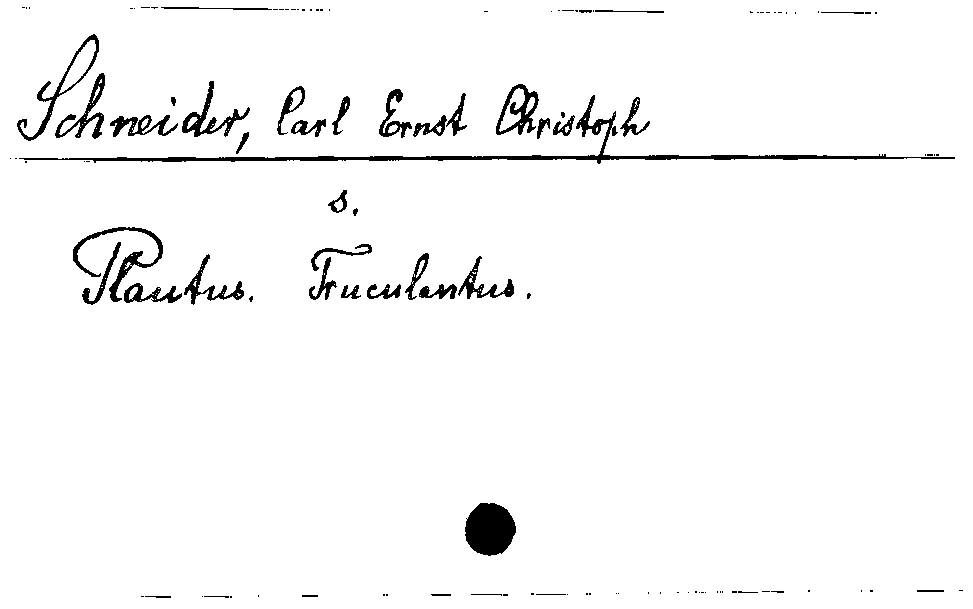 Schneider, Carl Ernst Christoph
s.
Plautus. Truculentus.